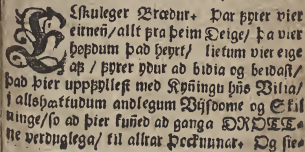 ELskuleger Brœdur. Þar fyrer vier
eirneñ/allt fra þeim Deige/ þa vier
hofdum þad heyrt/ lietum vier eige
af / fyrer ydur ad bidia og beidast/
þad þier uppfyllest med Kyñingu hñs Vilia/
j allshattudum andlegum Vijsdome og Skil
ninge/so ad þier kuñed ad ganga DROTT-
ne verduglega/ til allrar Þocknunar. Og sieu